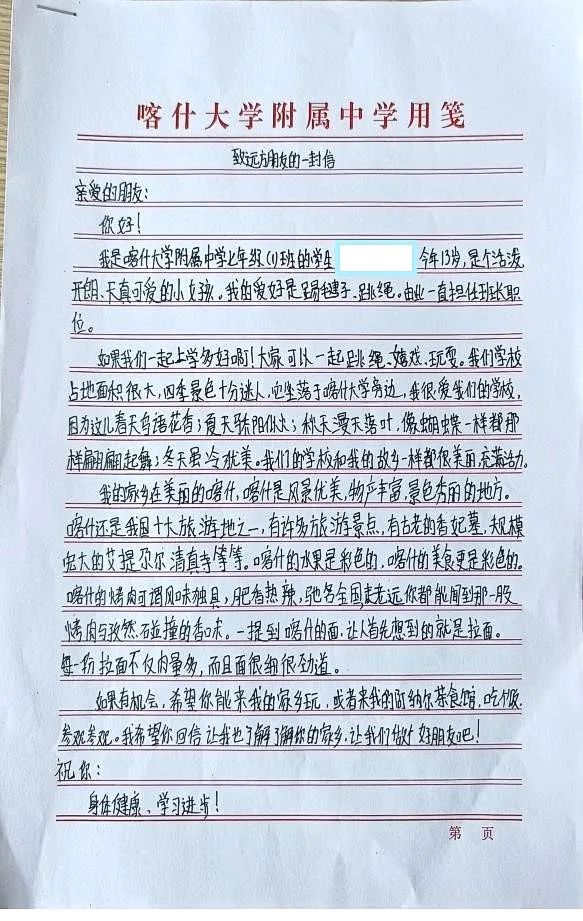 喀什大学附属中学用笺
致远方朋友的一封信
亲爱的朋友:
你好!
我是喀什大学附属中学七年级(1)班的学生 今年13岁,是个活泼
开朗、天真可爱的小女孩。我的爱好是踢毽子、跳绳。由此一直担任班长职
位。
如果我们一起上学多好啊!大家可以一起跳绳、嬉戏、玩耍。我们学校
占地面积很大,四季景色十分迷人,它坐落于喀什大学旁边,我很爱我们的学校,
因为这儿春天鸟语花香;夏天骄阳似火;秋天漫天落叶,像蝴蝶一样都那
样翩翩起舞;冬天虽冷犹美。我们的学校和我的故乡一样都很美丽充满活力。
我的家乡在美丽的喀什,喀什是风景优美,物产丰富,景色秀丽的地方。
喀什还是我国十大旅游地之一,有许多旅游景点,有古老的香妃墓,规模
宏大的艾提尕尔清真寺等等。喀什的水果是彩色的,喀什的美食更是彩色的。
喀什的烤肉可谓风味独具,肥香热辣,驰名全国,走老远你都能闻到那一股
烤肉与孜然碰撞的香味。一提到喀什的面,让人首先想到的就是拉面。
每一份拉面不仅肉量多,而且面很细很劲道。
如果有机会,希望你能来我的家乡玩,或者来我的阿纳尔菜食馆,吃饭
参观参观。我希望你回信让我也了解了解你的家乡,让我们做好朋友吧!
祝你:
身体健康、学习进步!
第 页